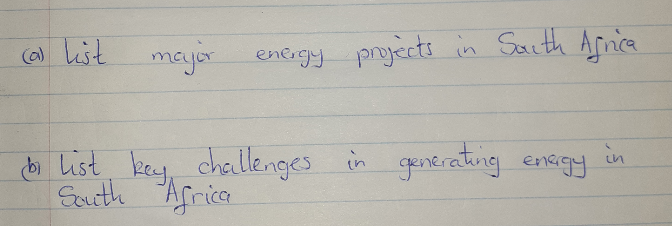 (a) List major energy projects in South Africa
(b) List key challenges in generating energy in
South Africa